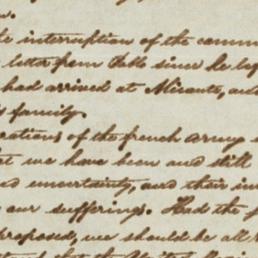 n.
the interruption of the comm
letter from Pablo since he le
had arrived at Alicante, and
s family.
rations of the french army
at we have been and still
and uncertainty, and their in
our sufferings. Had the
proposed, we should be all
that the United